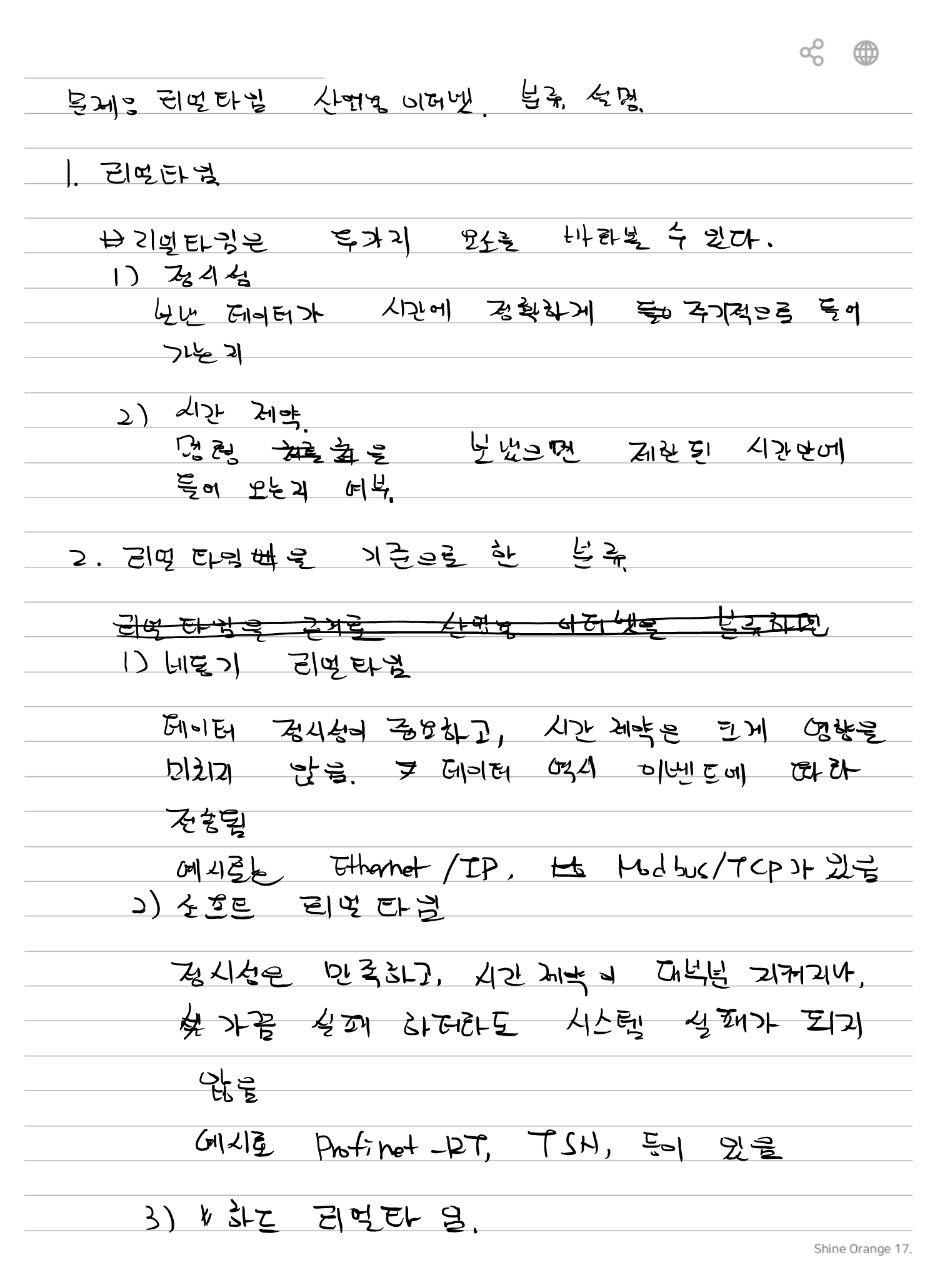 문제) 리얼타임 산업용 이더넷. 분류, 설명.
1. 리얼타임
⇒ 리얼타임은 두가지 요소를 바라볼 수 있다.
1) 정시성
보낸 데이터가 시간에 정확하게 주기적으로 들어
가는지
2) 시간 제약.
명령을 보냈으면 제한된 시간안에
들어 오는지 여부.
2. 리얼 타임을 기준으로 한 분류.
리얼 타임을 근거로 산업용 이더넷을 분류하면
1) 네트워크 리얼타임
데이터 정시성이 중요하고, 시간 제약은 크게 영향을
미치지 않음. 데이터 역시 이벤트에 따라
전송됨
예시로는 Ethernet/IP, Modbus/TCP가 있음
2) 소프트 리얼 타임
정시성은 만족하고, 시간 제약이 대부분 지켜지나,
가끔 실패 하더라도 시스템 실패가 되지
않음
예시로 Profinet-RT, TSN, 등이 있음
3) 하드 리얼타임.
Shine Orange 17.